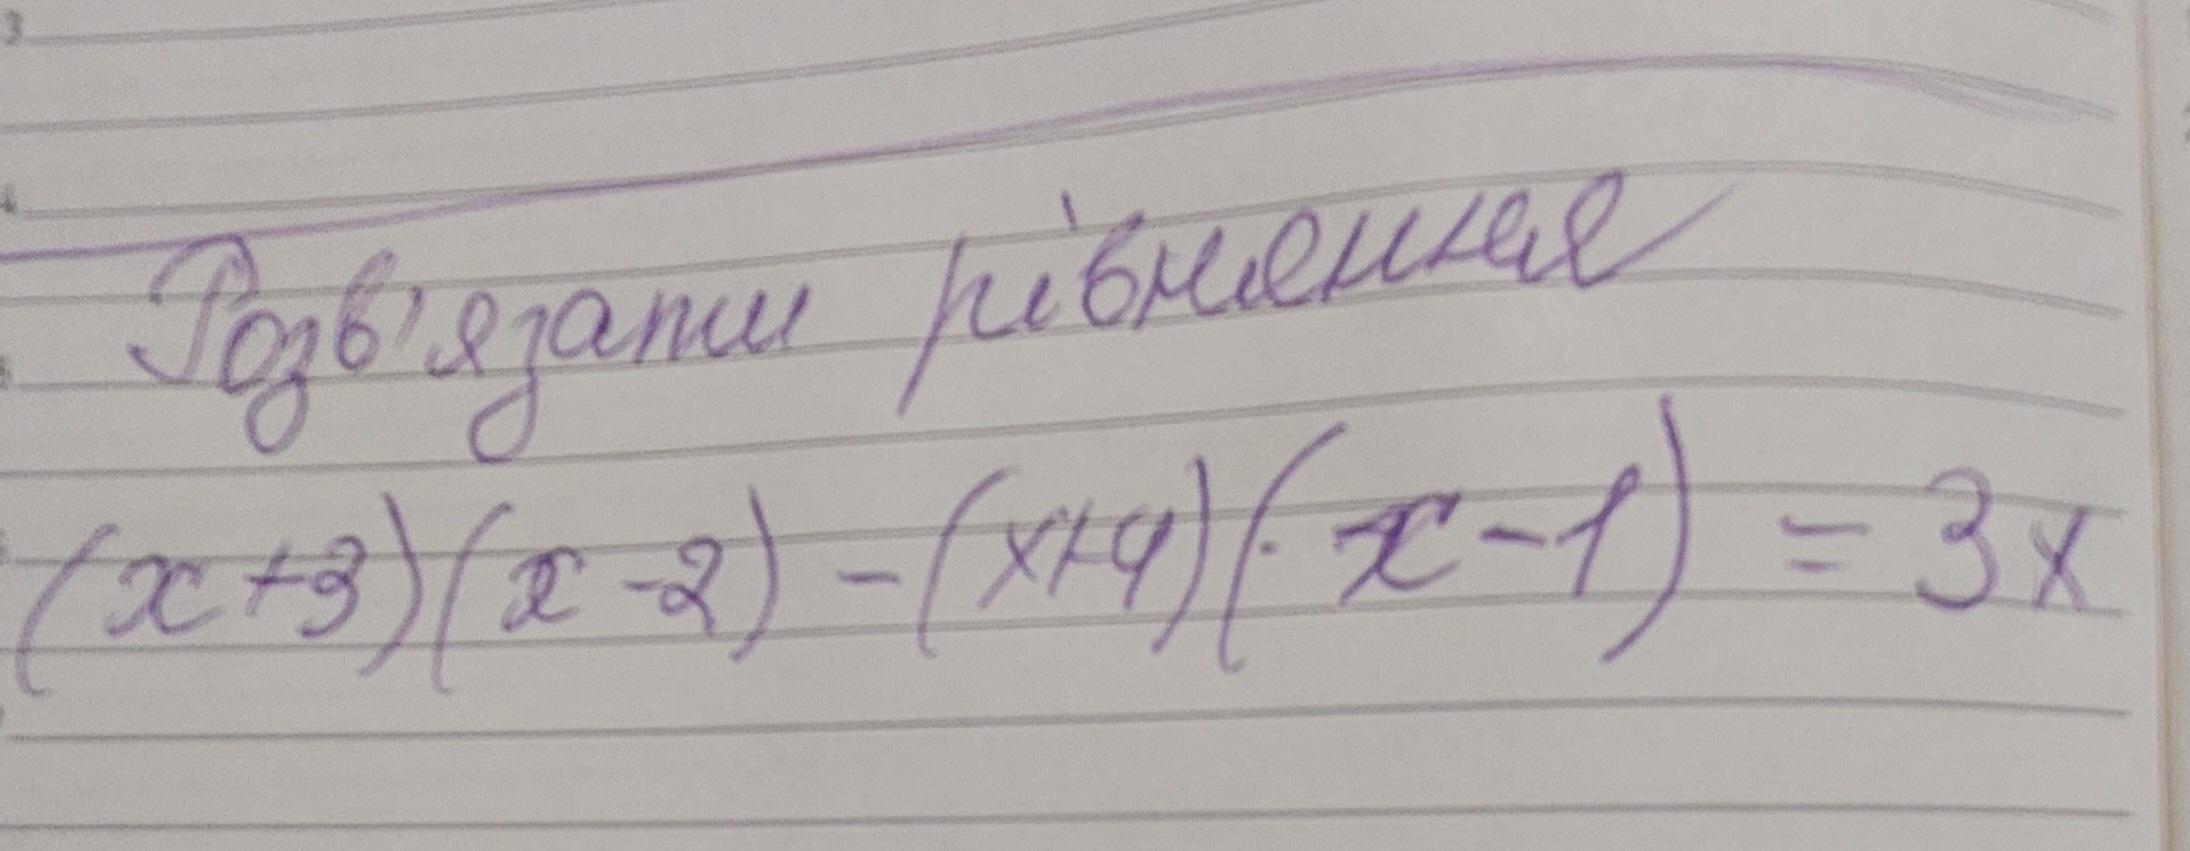 Розв'язати рівняння
(x+3)(x-2)-(x+4)(x-1)=3x